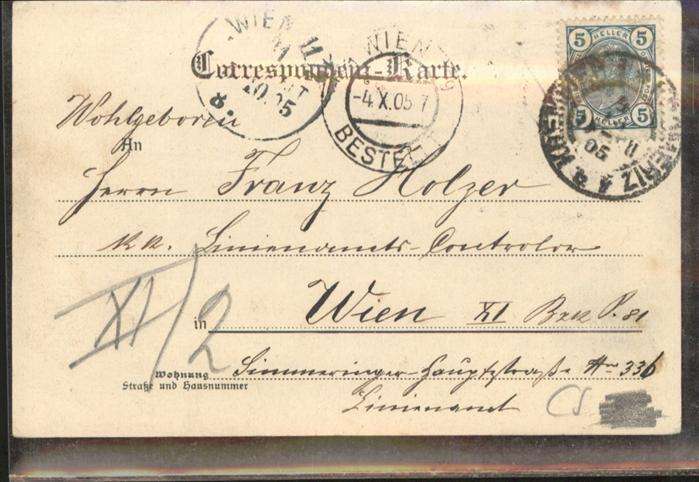 WIEN 11
5 HELLER 5
Correspondenz-Karte.
WIEN
-4.X.05 7
BESTELLT
5 HELLER 5
Wohlgeboren
An
Herrn Franz Holzer
k.k. Linienamts-Controlor
XI/2
in Wien XI Bez. P. 81
Wohnung
Straße und Hausnummer
Simmeringer-Hauptstraße Nro 336
Linienamt
CS